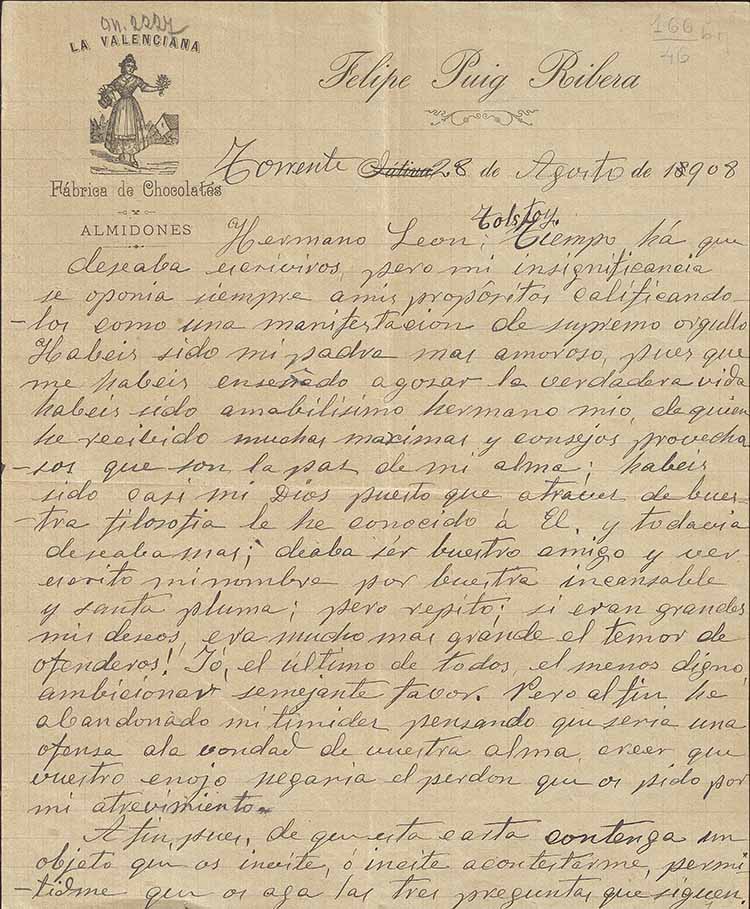 N. 2227
LA VALENCIANA
166
46
Felipe Puig Ribera
Torrente Játiva, 28 de Agosto de 1908
Fábrica de Chocolates
ALMIDONES
Tolstoy.
Hermano Leon; Tiempo há que
deseaba escriviros, pero mi insignificancia
se oponia siempre amis propósitos calificando-
-los como una manifestacion de supremo orgullo
Habeis sido mi padre mas amoroso, pues que
me habeis enseñado agosar la verdadera vida
habeis sido amabilisimo hermano mio, de quien
he recibido muchas maximas y consejos provecho
-sos que son la paz de mi alma; habeis
sido casi mi Dios puesto que atraves de bues-
-tra filosofia le he conocido á El, y todavia
deseaba mas; deaba sér buestro amigo y ver
escrito minombre por buestra incansable
y santa pluma; pero repito; si eran grandes
mis deseos, era mucho mas grande el temor de
ofenderos! Yó, el último de todos, el menos digno,
ambicionar semejante favor. Pero alfin he
abandonado mitimidez pensando que seria una
ofensa ala vondad de vuestra alma, creer que
vuestro enojo negaria el perdon que os pido por
mi atrevimiento.
Afin pues, de que esta carta contenga un
objeto que os invite, ó incite acontestarme, permi
-tidme que os aga las tres preguntas que siguen.